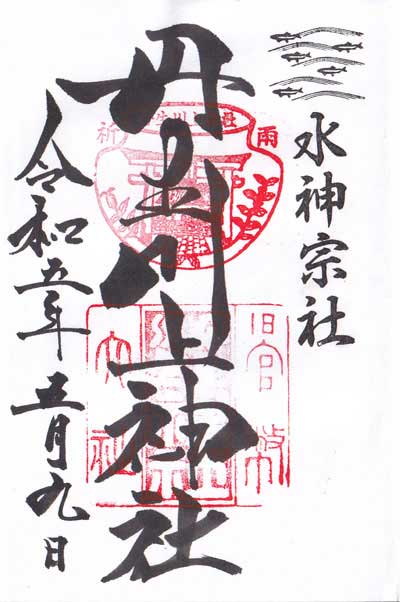 水神宗社
丹生川上神社
令和五年五月九日
雨
祈
旧官幣
大社